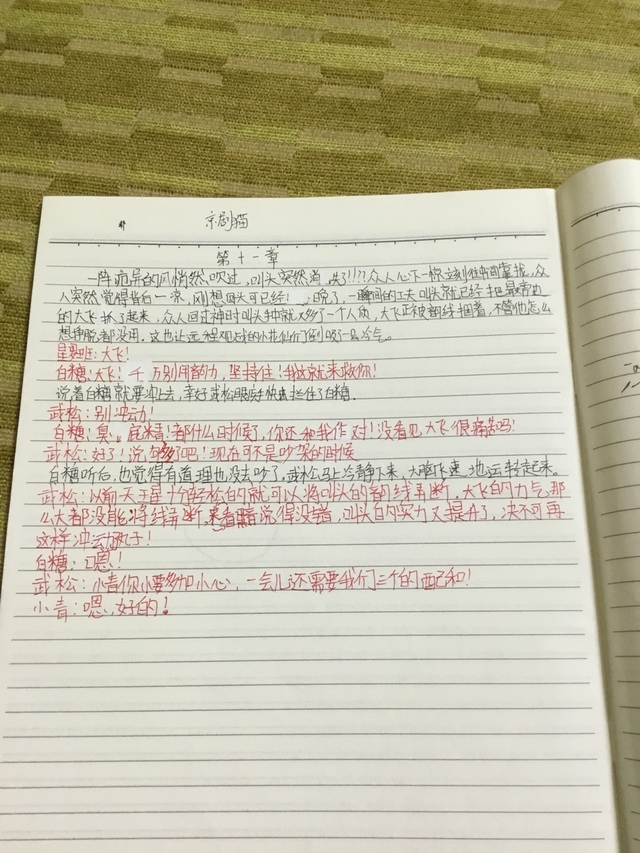 京剧猫
第十一章
一阵诡异的风悄然吹过，叫头突然消失了!!!?众人心下一惊立刻往中间靠拢，众
人突然觉得背后一凉，刚想回头可已经晚了，一瞬间的工夫叫头就已经把最旁边
的大飞抓了起来，众人回过神时叫头手中就又多了一个人质，大飞正被韵线捆着，不管他怎么
想挣脱都没用，这也让远程观战的小花仙们倒吸了一口冷气。
星罗班：大飞！
白糖：大飞！千万别用韵力，坚持住！我这就来救你！
说着白糖就要冲上去，幸好武松眼疾手快拦住了白糖．
武松：别冲动！
白糖：臭屁精！都什么时候了，你还和我作对！没看见大飞很痛苦吗！
武松：好了！说够多了吧！现在可不是吵架的时候
白糖听后，也觉得有道理也没去吵了，武松马上冷静下来，大脑飞速地运转起来。
武松：以前天王星十个轻松的就可以将叫头的韵线弄断，大飞的力气那
么大都没能将线弄断，来看暗说得没错，叫头的实力又提升了，决不可再
这样冲动下去了！
白糖：嗯！
武松：小青你小要多加小心，一会儿还需要我们三个的配和！
小青：嗯，好的！